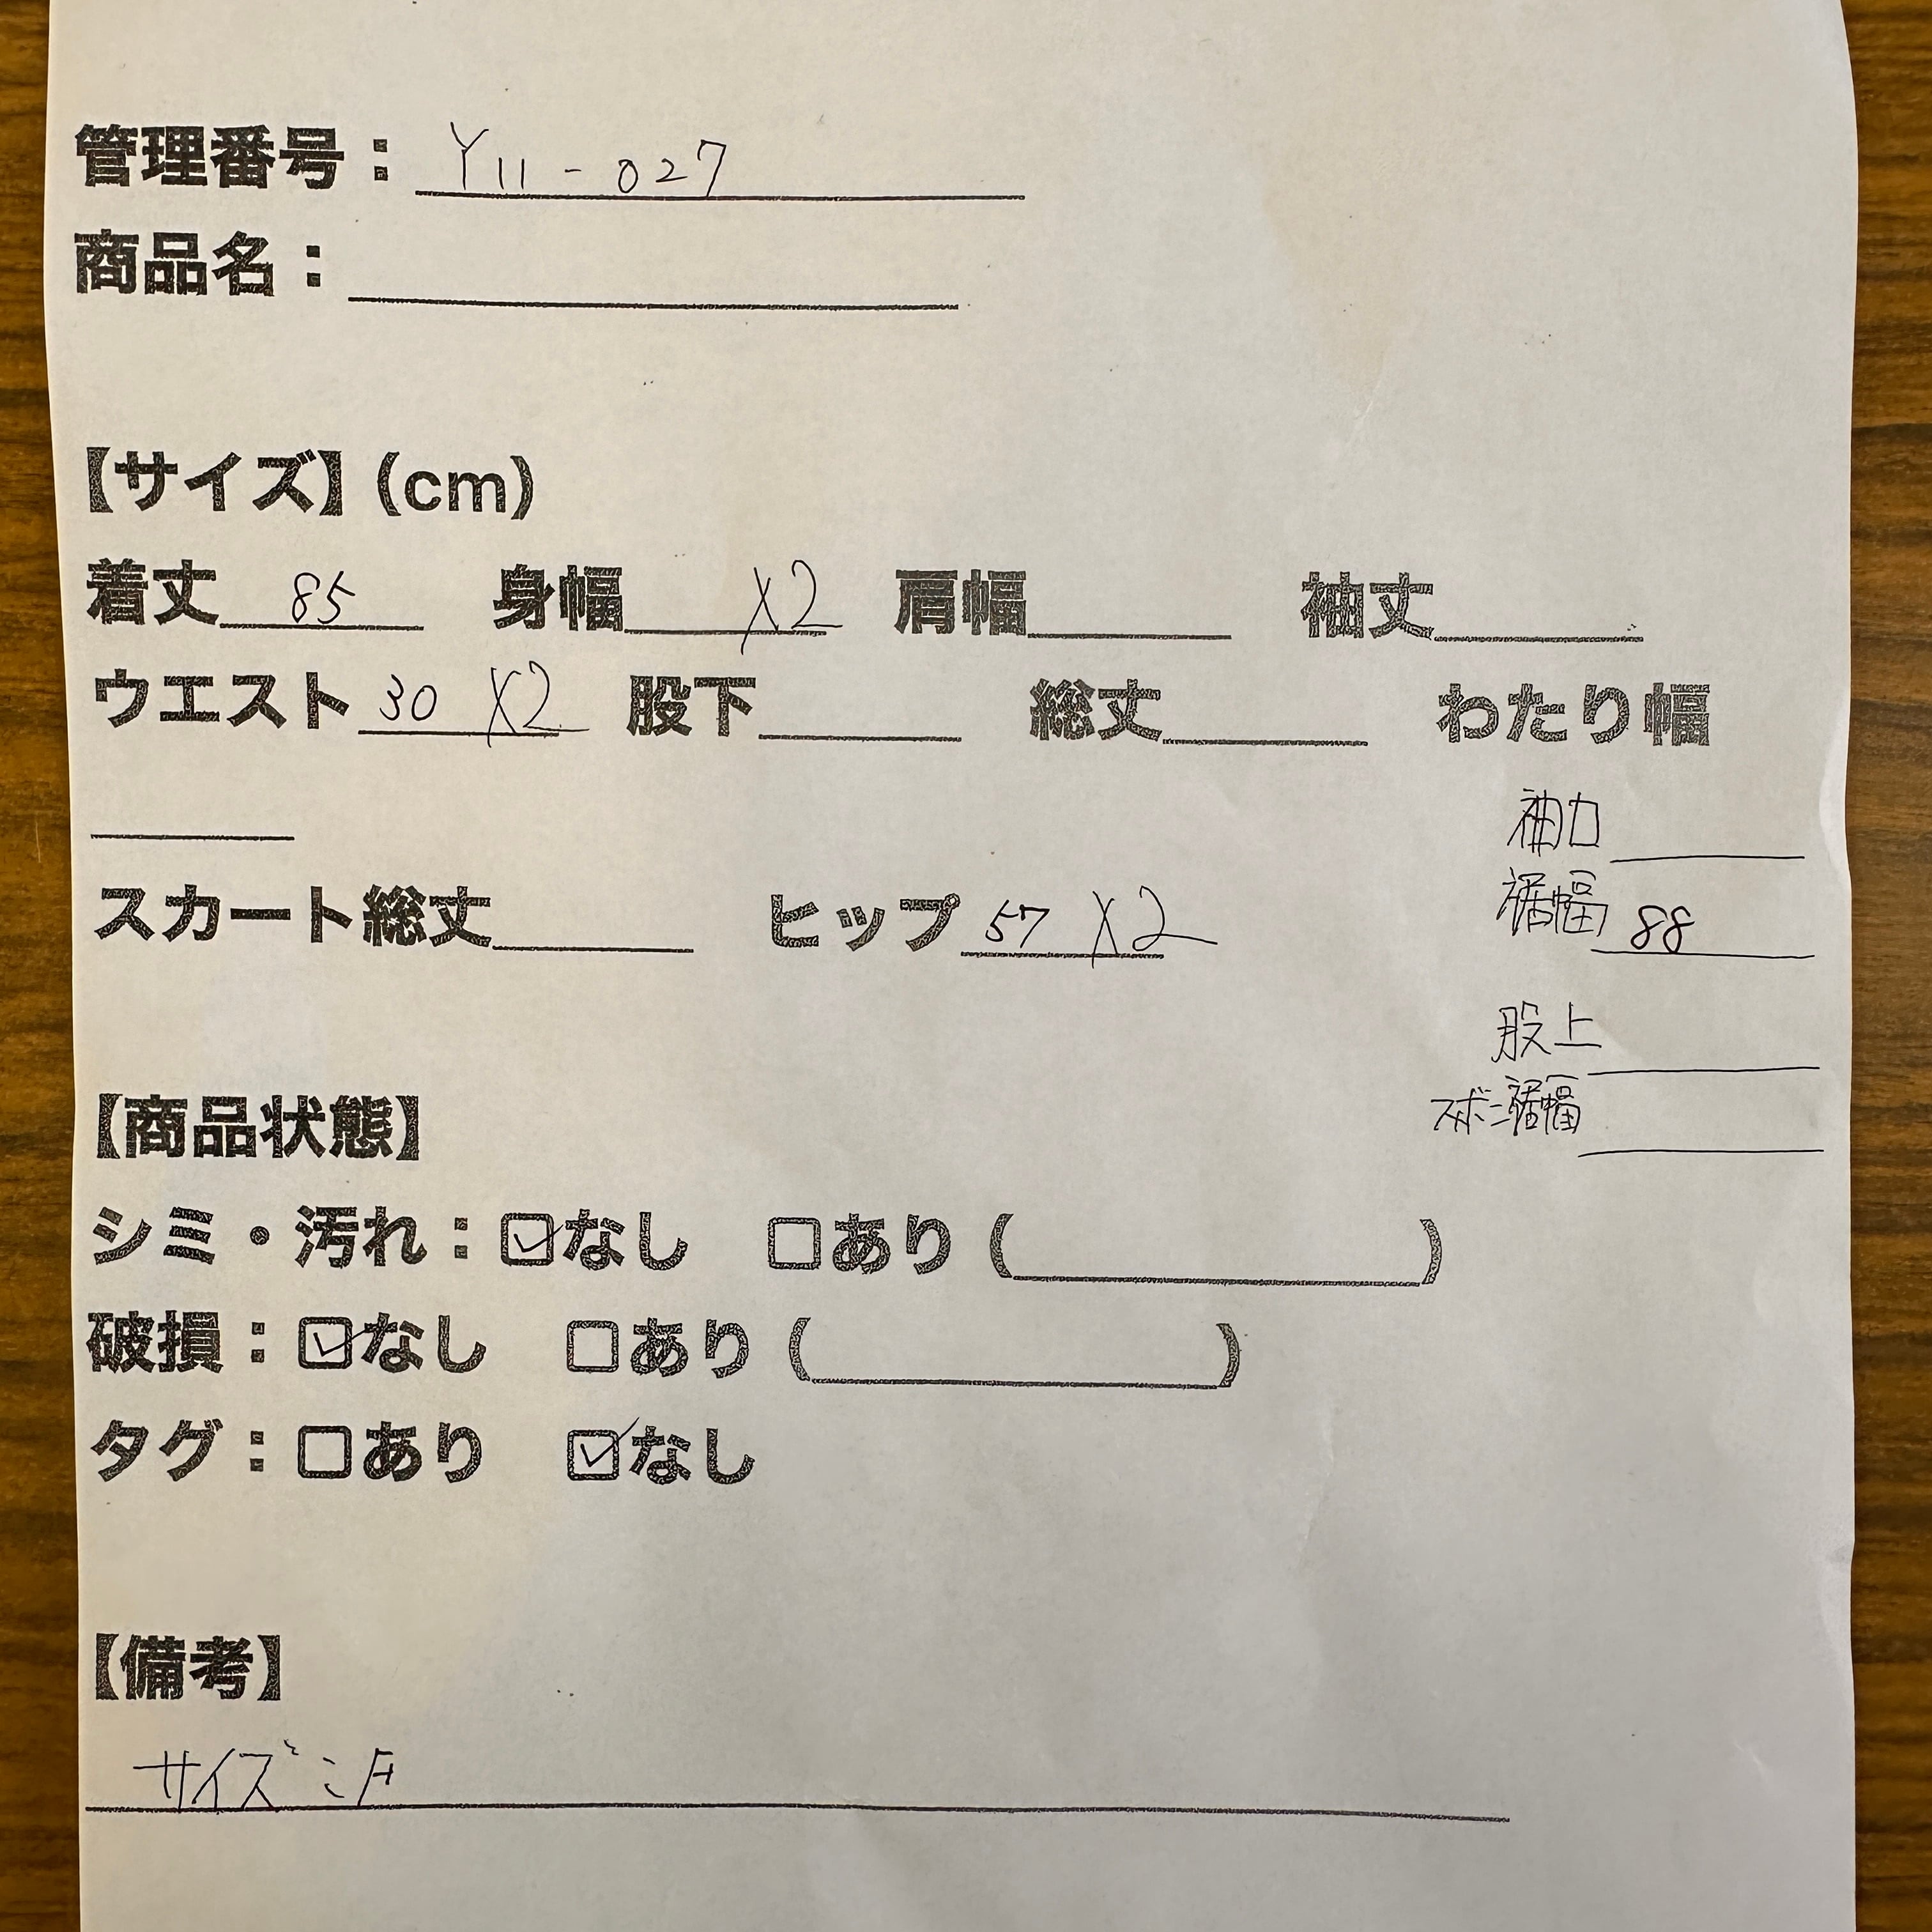 管理番号：Y11-027
商品名：
【サイズ】(cm)
着丈 85 身幅 X2 肩幅 袖丈
ウエスト 30 X2 股下 総丈 わたり幅
袖口
スカート総丈 ヒップ 57 X2
裾幅 88
股上
ズボン裾幅
【商品状態】
シミ・汚れ：☑なし □あり ( )
破損：☑なし □あり ( )
タグ：□あり ☑なし
【備考】
サイズ：F